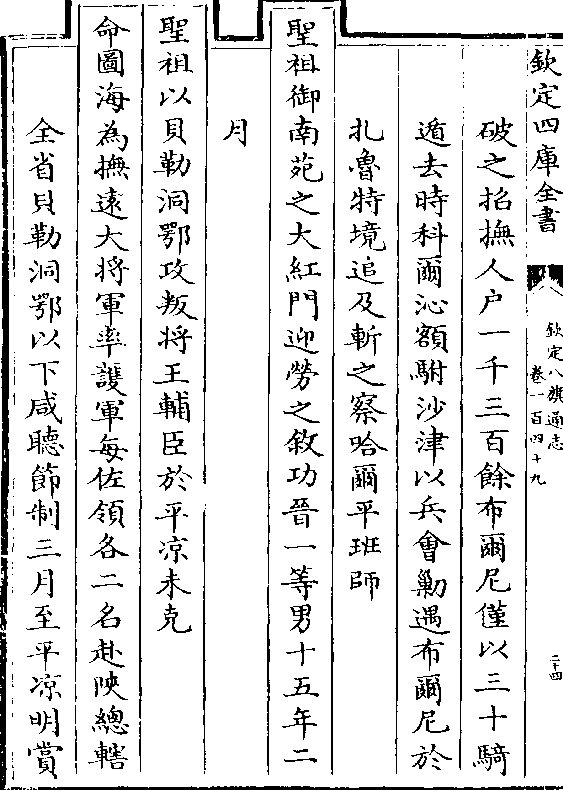 欽定四庫全書
欽定八旗通志
卷一百四十九
二十四
破之招撫人户一千三百餘布爾尼僅以三十騎
遁去時科爾沁額駙沙津以兵會勦遇布爾尼於
扎魯特境追及斬之察哈爾平班師
聖祖御南苑之大紅門迎勞之敘功晉一等男十五年二
月
聖祖以貝勒洞鄂攻叛将王輔臣於平凉未克
命圖海為撫遠大将軍率護軍每佐領各二名赴陜總轄
全省貝勒洞鄂以下咸聽節制三月至平凉明賞